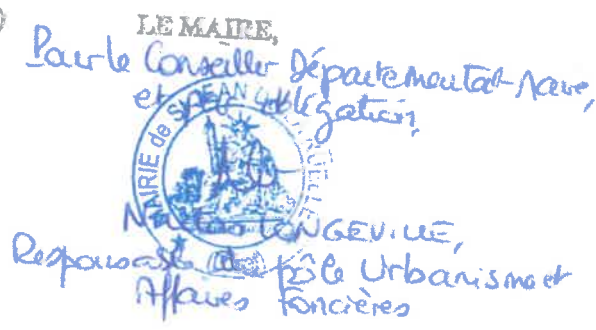 LE MAIRE,
Pour le Conseiller Départemental-Maire,
et par délégation,
MAIRIE de ST JEAN RUELLE
LONGEVILLE,
Responsable du pôle Urbanisme et
Affaires Foncières